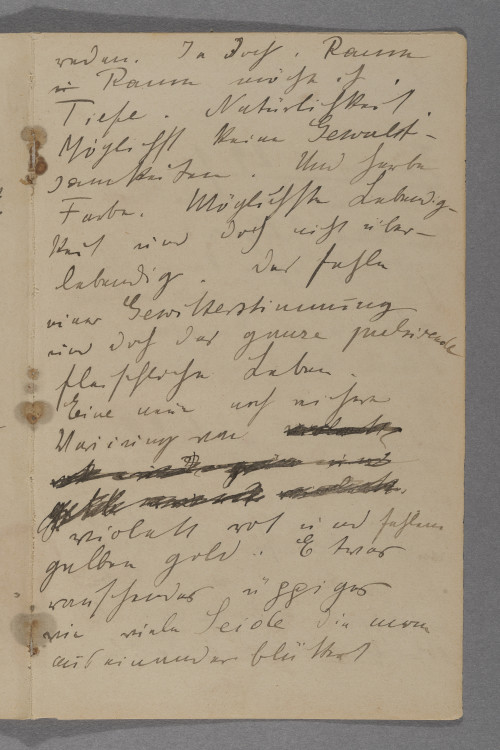 werden. Ja doch. Raum
Raum möcht ich.
Tiefe. Natürlichkeit.
Möglichst keine Gewalt-
samkeiten. Und Farbe
Farbe. Möglichste Lebendig-
keit und doch nicht über-
lebendig. Das fahle
einer Gewitterstimmung
und doch das ganze pulsirende
fleischliche Leben.
Eine neue noch reichere
Variirung von
violett rot und fahlem
gelben gold. Etwas
rauschendes üppiges
wie viele Seide die man
auseinander blättert